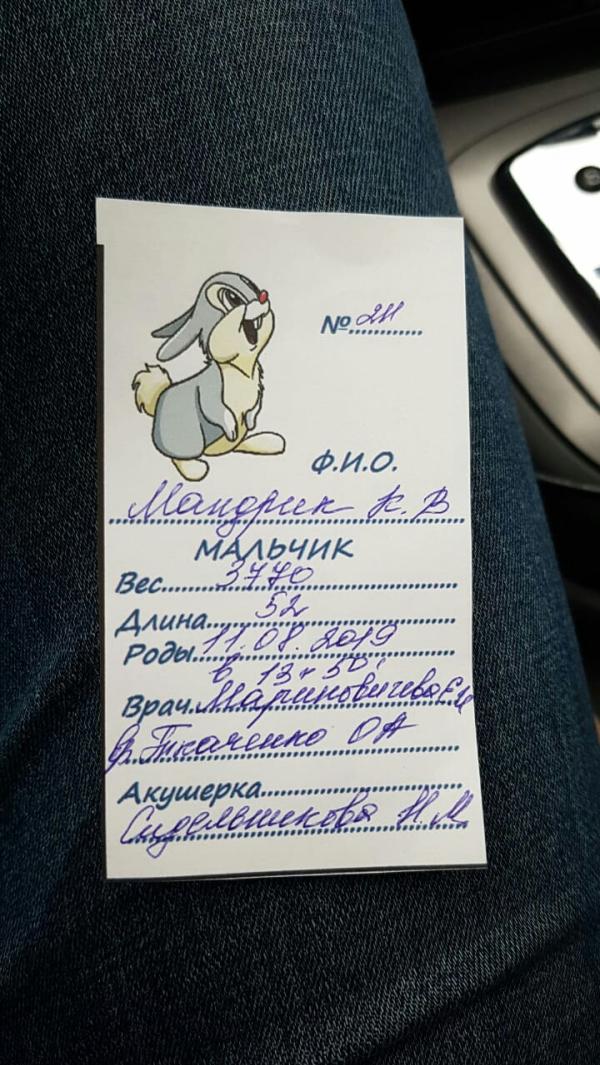 № 211
Ф.И.О.
Мандрик К. В
МАЛЬЧИК
Вес 3770
Длина 52
Роды 11.08.2019
в 13ч 50'
Врач Мариновичева Е И
Ткаченко О А
Акушерка
Сидельникова Н. М